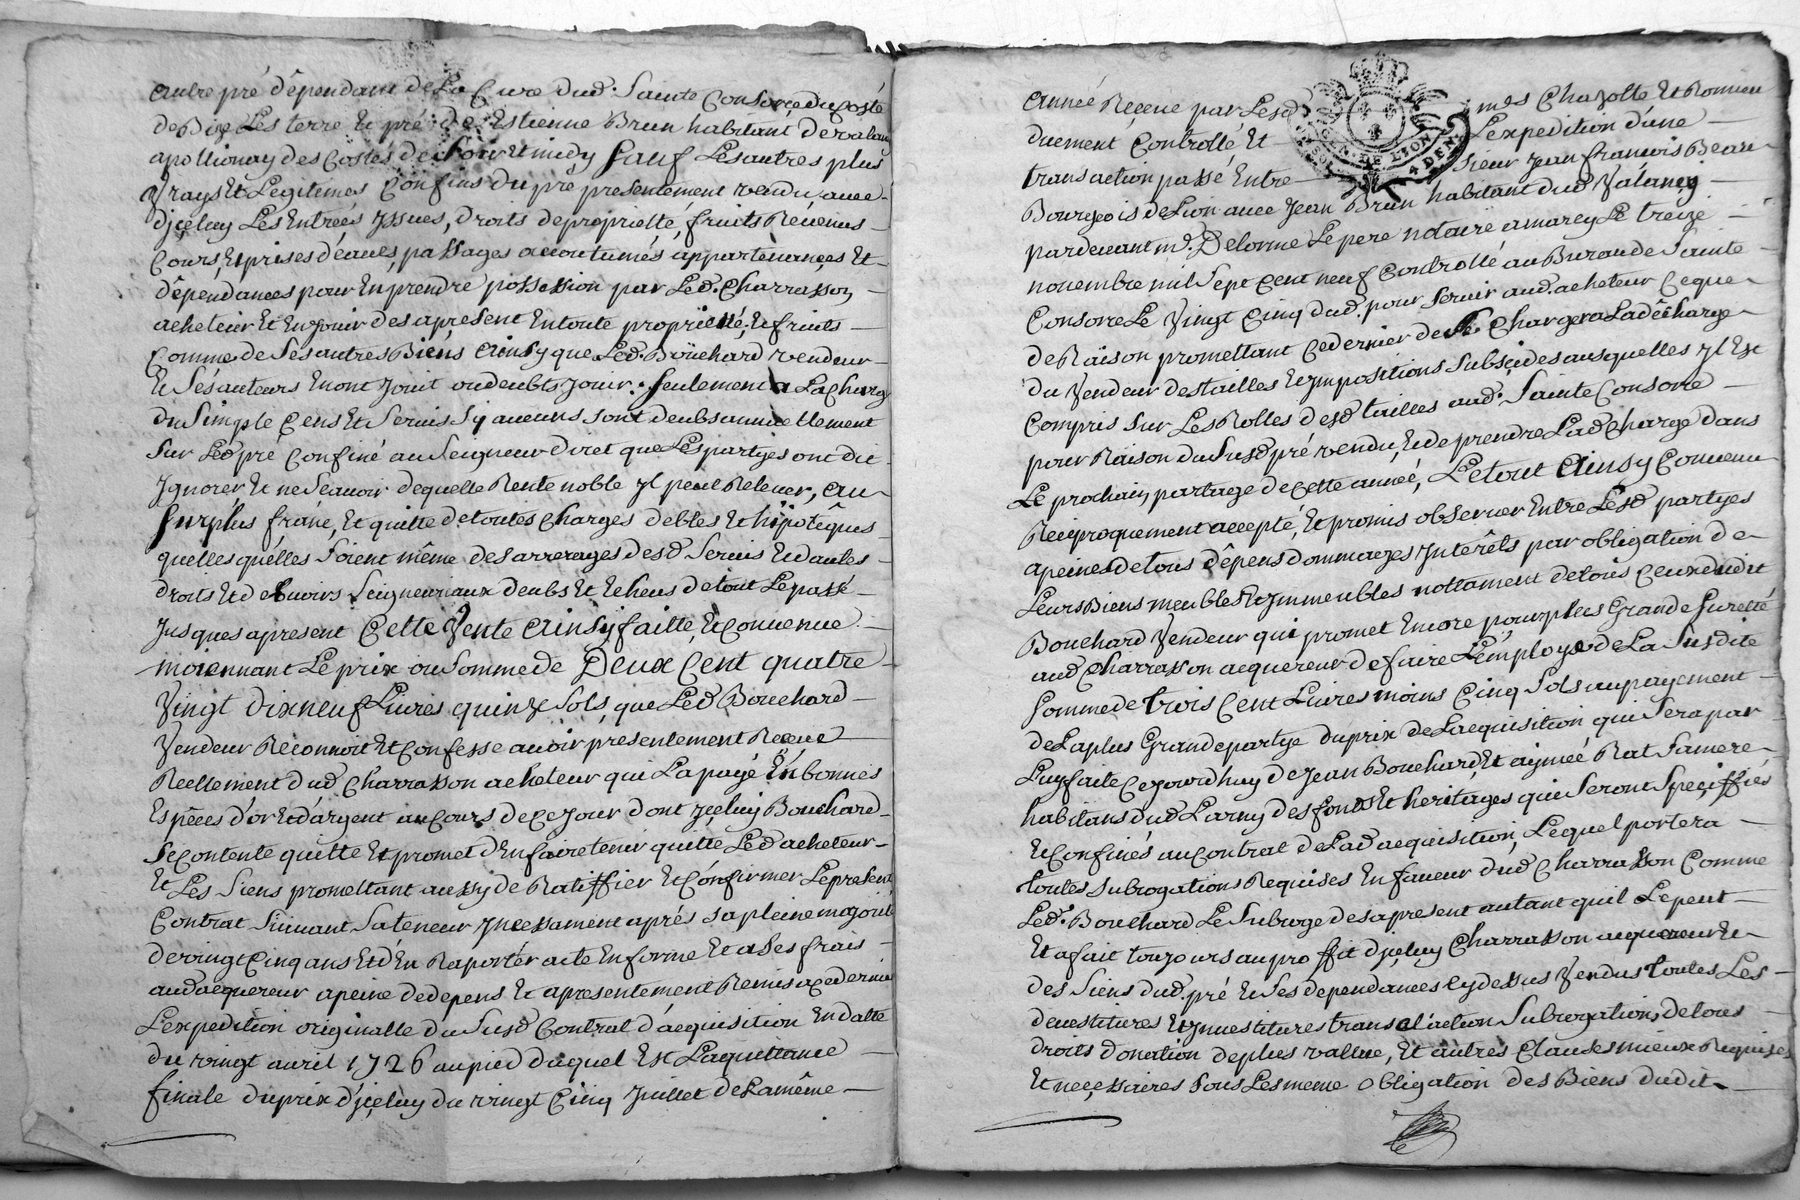 autre pré dêpendant de La Cure dud. Sainte Consorce du Costé
de Bize Les terre Et pré de Estienne Brun habitant de
apollionay des Costés de soir Et midy Sauf Les autres plus
Vrays Et Legitimes Confins du pré presentement vendu, avec
djceluy Les Entreés Jssues, droits de proprietté, fruits Révenus
Cours, Et prises déaues, passages accoutumés appartenances Et
dêpendances pour En prendre possession par Led. Charrasson
acheteur Et En Jouir des apresent En toute proprietté, Et fruits
Comme de Ses autres Biens Ainsy que Led. Boüchard vendeur
Et Sés auteurs En ont Jouit ou deubts Jouir. Seulement a La Charge
du Simple Cens Et Servis Sy aucuns sont deubs annuellement
Sur Led pré Confiné au Seigneur direct que Les partyes ont dit
Jgnorer, Et ne Scavoir de quelle Rente noble Jl peut Relever, au
Surplus franc, Et quitte de toutes Charges debtes Et hipotêques
quelles quélles Soient même des arrerages desd Servis Et dautes
droits Et debvoirs Seigneuriaux deubs Et Echeus de tout Le passé
Jusques apresent Cette Vente Ainsy faitte, Et Convenue
moiennant Le prix ou Somme de Deux Cent quatre
Vingt dix neuf Livres quinze Sols, que Led Bouchard
Vendeur Reconnoit Et Confesse avoir presentement Receue
Reellement dud Charrasson acheteur qui La payé En bonnes
Espêces d'or Et d'argent au Cours de Ce Jour dont Jceluy Bouchard
Se Contente quitte Et promet d'En faire tenir quitte Led acheteur
Et Les Siens promettant aussy de Ratiffier Et Confirmer Le present
Contrat Suivant Sa teneur Jncessament aprés sa pleine majorité
de vingt Cinq ans Et d'En Raporter acte En forme Et a Ses frais
aud acquereur apeine de depens Et a presentement Remis a ce dernier
L'expedition originalle du Susd Contrat d'acquisition En datte
du vingt avril 1726 au pied d'aquel Est La quittance
finale du prix d'jceluy du vingt Cinq Juillet de La même
année Receue par Lesd mes Chazotte Et Ronnieu
duement Controllé Et L'expedition d'une
transaction passé Entre Sieur Jean francois Beau
Bourgeois de Lion avec Jean Brun habitant dud
pardevant me. Delorme Le pere notaire a marcy Le treize
novembre mil Sept Cent neuf Controllé au Bureau de Sainte
Consorce Le Vingt Cinq dud. pour Servir aud. acheteur Ce que
de Raison promettant Ce dernier de Se Chargera La dêcharge
du Vendeur des tailles Et Jmpositions Subsides ausquelles Jl Est
Compris sur Les Rolles desd tailles aud. Sainte Consorce
pour Raison du Susd pré vendu, Et de prendre Lad Charge dans
Le prochain partage de Cette année, Le tout Ainsy Convenu
Reciproquement accepté, Et promis observer Entre Lesd partyes
apeines de tous dêpens dommages Jnterêts par obligation de
Leurs Biens meubles Et Jmmeubles nottament de tous Ceux dudit
Bouchard Vendeur qui promet Encore pour plus Grande Suretté
aud Charrasson acquereur de faire L'employe de La Susdite
Somme de trois Cent Livres moins Cinq Sols au payement
de La plus Grande partye du prix de L'acquisition qui Sera par
Luy faite Cejourdhuy de Jean Bouchard, Et aymée Rat Sa mere
habitans dud Larny des fonds Et heritages qui Seront Spéciffiés
Et Confinés au Contrat de Lad acquisition, Lequel portera
toutes Subrogations Requises En faveur dud Charrasson Comme
Led. Bouchard Le Subroge des apresent autant quil Le peut
Et a fait toujours au proffit d'jceluy Charrasson acquereur Et
des Siens dud. pré Et Ses dependances Cy dessus Vendus toutes Les
devestitures Et Jnvestitures translation Subrogations, de tous
droits donation de plus vallue, Et autres Clauses mieux Requises
Et necessaires sous Les meme obligation des Biens dudit